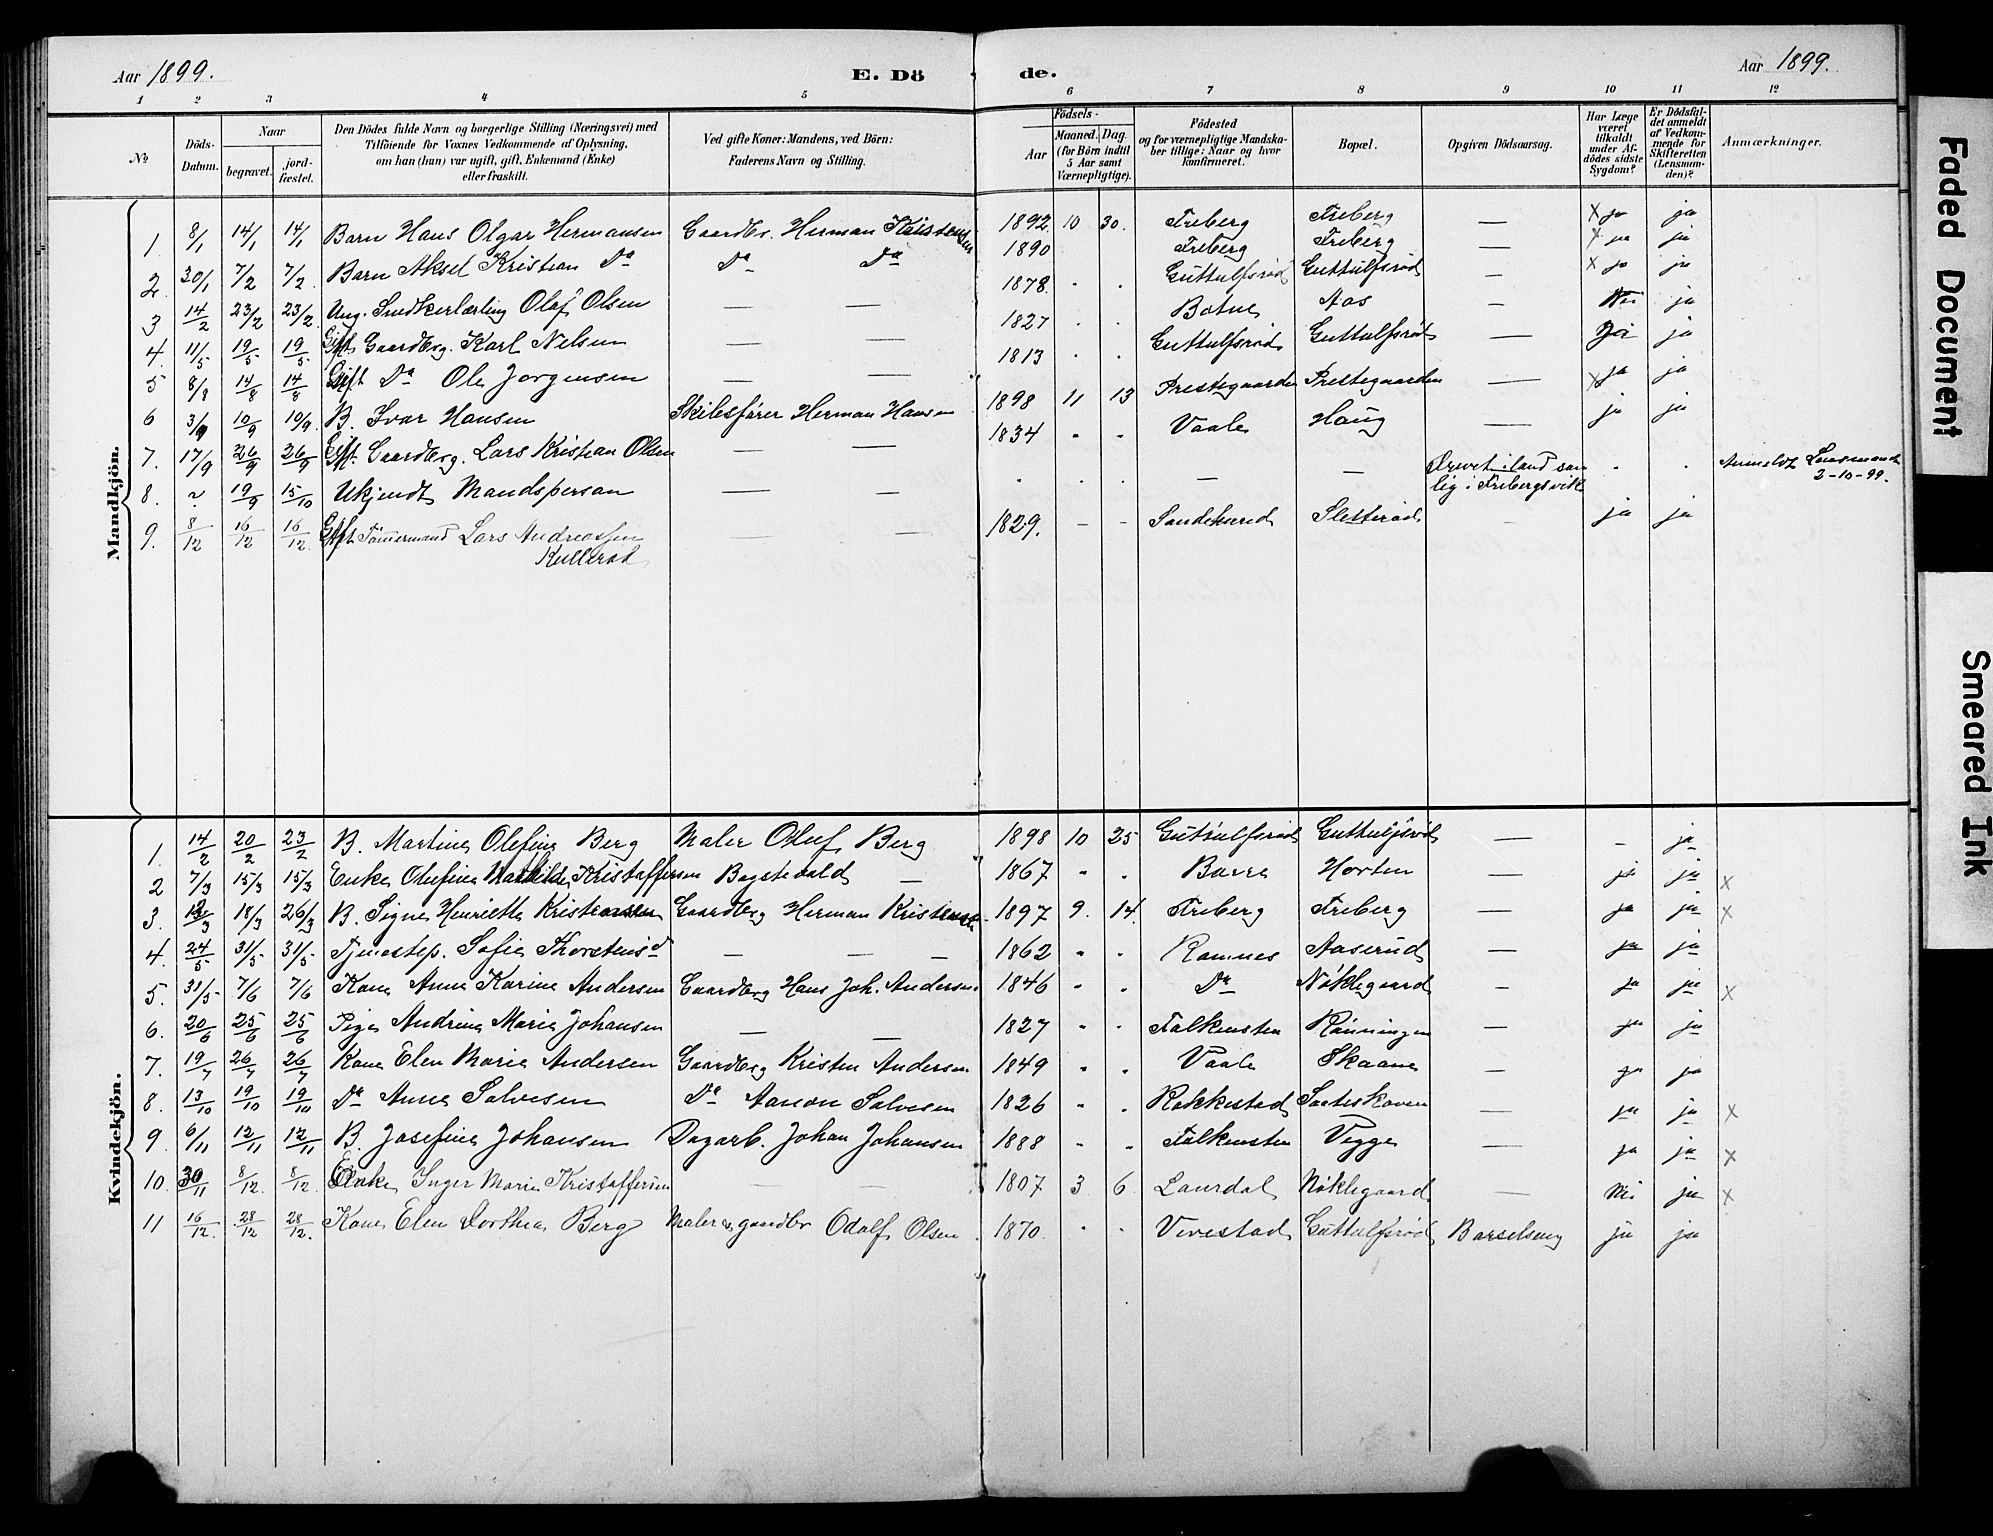 Aar 1899. E. Dö de. Aar 1899.
1 2 3 4 5 6 7 8 9 10 11 12
No Döds-Datum. Naar begravet. jord-fæstet. Den Dödes fulde Navn og borgerlige Stilling (Næringsvei) med Tilföiende for Voxnes Vedkommende af Oplysning, om han (hun) var ugift, gift, Enkemand (Enke) eller fraskilt. Ved gifte Koner: Mandens, ved Börn: Faderens Navn og Stilling. Födsels- Aar Maaned. Dag. (for Börn indtil 5 Aar samt Værnepligtige). Födested og for værnepligtige Mandskaber tillige: Naar og hvor konfirmeret. Bopæl. Opgiven Dödsaarsag. Har Læge været tilkaldt under Afdödes sidste Sygdom? Er Dödsfaldet anmeldt af Vedkommende for Skifteretten (Lensmanden)? Anmærkninger.
Mandkjön.
1. 8/1 14/1 14/1 Barn Hans Olgar Hermansen Gaardbr. Herman Kristensen 1892 10 30. Freberg Freberg — x ja ja
2. 30/1 7/2 7/2 Barn Aksel Kristian Do Do Do 1890 Freberg Freberg — x ja ja
3 14/2 23/2 23/2 Ung. Snedkerlærling Olaf Olsen — — 1878. " " Guttulfsrød Guttulfsrød — x ja ja
4. 11/5 19/5 19/5 Gift Gaardbrg. Karl Nelsen — — 1827 " " Botne Aas — Nei ja
5 8/8 14/8 14/8 Gift Do Ole Jorgensen — — 1813 " " Guttulfsrød Guttulfsrød — ja
6 3/9 10/9 10/9 B. Ivar Hansen Skibsfører Herman Hansen 1898 11 13 Prestegaarden Prestegaarden — x ja ja
7. 17/9 26/9 26/9 Gift. Gaardbrg. Lars Kristian Olsen — — 1834 " " Vaale Haug — ja ja
8. ~ 19/9 15/10 Ukjendt Mandsperson — — . . . — — Drevet i land som lig i Frebergsvik . . Anmeldt Lensmand 2-10-99.
9. 8/12 16/12 16/12 Gift. Tømmermand Lars Andreassen Kullerød — — 1829. — - Sandeherred Sletterød ja ja
Kvindekjön.
1. 14/2 20/2 23/2 B. Martine Olefine Berg Maler Oluf Berg 1898 10 25 Guttulfsrød Guttulfsrød — - ja
2 7/3 15/3 15/3 Enke Olufine Mathilde Kristoffersen Bogstevold — 1867 " " Borre Horten ja ja x
3. 12/3 18/3 26/3 B. Signe Henriette Kristensen Gaardbrg Herman Kristensen 1897 9. 14. Freberg Freberg — ja ja x
4. 24/5 31/5 31/5 Tjenestep. Sofie Thorstensd — — — 1862 " " Ramnes Aaserud — ja ja
5. 31/5 7/6 7/6 Kone Anne Karine Andersen Gaardbrg Hans Joh. Andersen 1846 " " Do Nøklegaard — ja ja x
6. 20/6 25/6 25/6 Pige Andrine Marie Johansen — — 1827 " " Falkensten Rønningen — ja ja
7. 19/7 26/7 26/7 Kone Elen Marie Andersen Gaardbrg Kristen Andersen 1849 " " Vaale Skaane — ja ja
8. 13/10 19/10 19/10 Do Anne Salvesen Do Aanon Salvesen 1826 " " Rakkestad — ja ja x
9 6/11 12/11 12/11 B. Josefine Johansen Dagarb. Johan Johansen 1888 " " Falkensten Vegge — ja ja x
10. 30/11 8/12. 8/12. Enke Inger Marie Kristoffersen — — 1807 3 6. Laurdal Nøklegaard — Nei ja x
11 16/12. 28/12 28/12. Kone Elen Dorthea Berg Maler & gaardbr Odolf Olsen 1870. " " Vivestad Guttulfsrød Barselseng ja ja
Faded Document
Smeared Ink